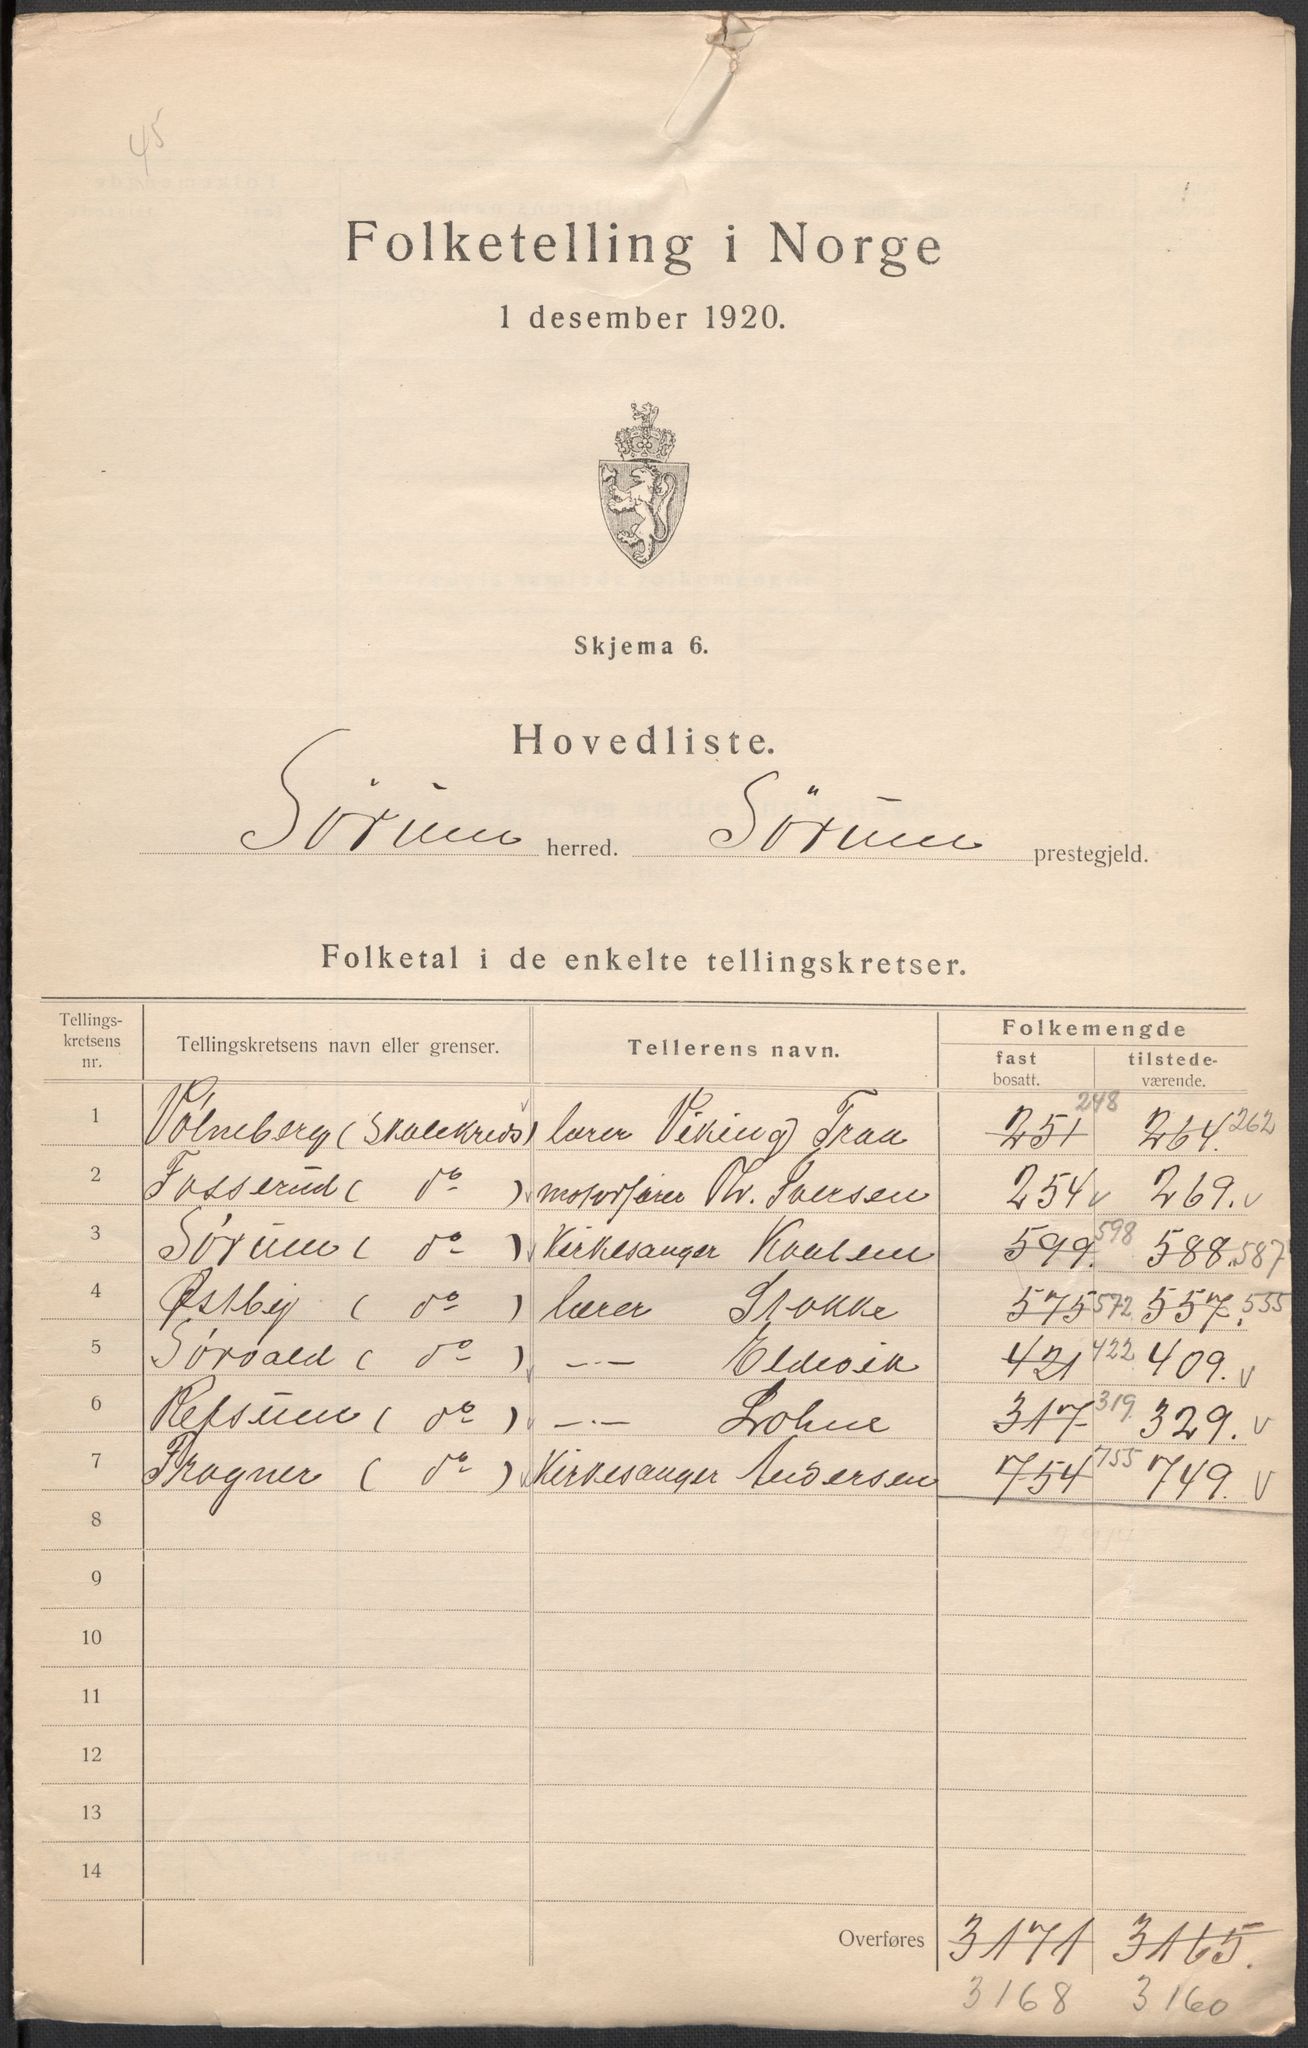 45
Folketelling i Norge
1 desember 1920.
Skjema 6.
Hovedliste.
Sörum herred. Sörum prestegjeld.
Folketal i de enkelte tellingskretser.
Tellings-kretsens nr. Tellingskretsens navn eller grenser. Tellerens navn. Folkemengde
fast bosatt. tilstede-værende.
1 Vølneberg (Skolekreds) lærer Viking Traa 251 248 264. 262
2 Fosserud ( do ) motorfører Iversen 254 v 269. v
3 Sörum ( do ) Kirkesanger Kvalem 599. 598 588. 587
4 Østby ( do ) lærer Stokke 575 572 557. 555
5 Sørvald ( do ) —"— Eldevik 421 422 409. v
6 Refsum ( do ) —"— Lohne 317 319 329. v
7 Frogner ( do ) Kirkesanger Andersen 754 755 749. v
8
9
10
11
12
13
14
Overføres 3171 3165.
3168 3160